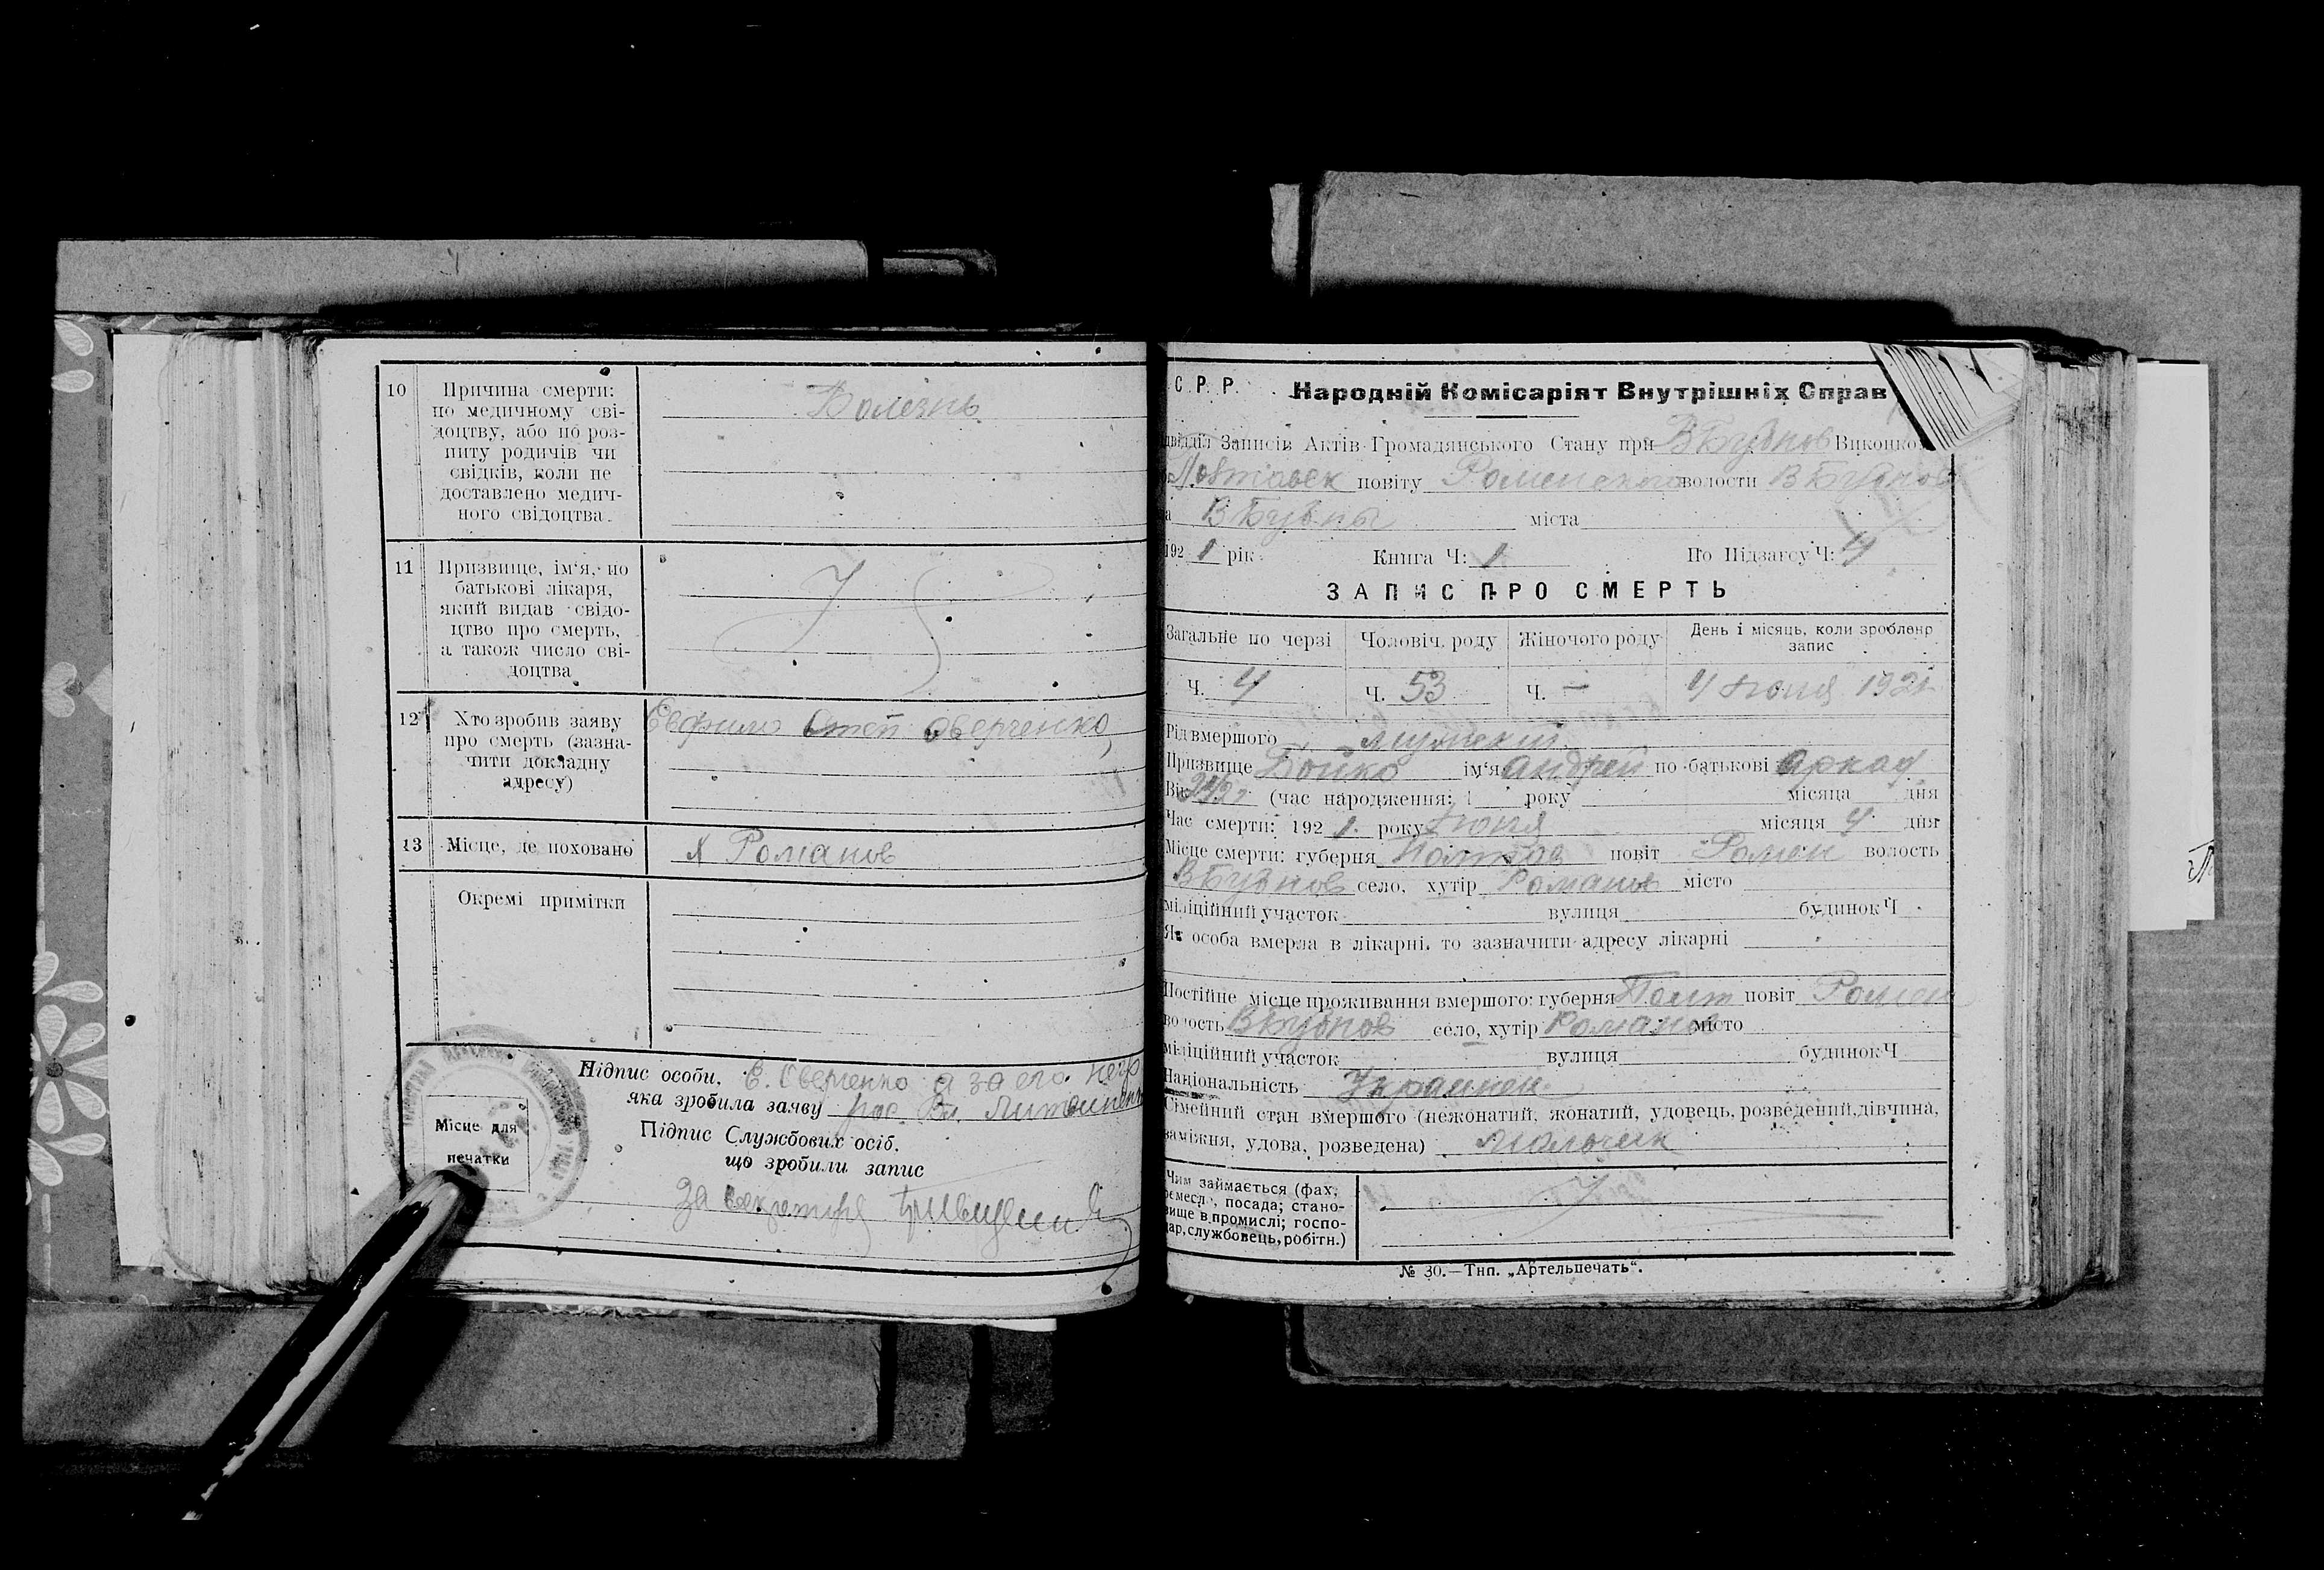 10
Причина смерти:
по медичному сві-
доцтву, або по роз-
питу родичів чи
свідків, коли не
доставлено медич-
ного свідоцтва.
Болезнь
11
Призвище, ім'я, по
батькові лікаря,
який видав свідо-
цтво про смерть,
а також число сві-
доцтва
12
Хто зробив заяву
про смерть (зазна-
чити докладну
адресу)
Оверченко
13
Місце, де поховано
х Романов
Окремі примітки
Місце для
печатки
Підпис особи, Е. Оверченко а за его негр
яка зробила заяву рос.
Підпис Службових осіб.
що зробили запис
За секретаря
С. Р. Р.
Народній Комісаріят Внутрішніх Справ
Записів Актів Громадянського Стану при В Бубнов Виконко
Полтавск повіту Роменского волости В Бубнов
В Бубны міста
192 1 рік Книга Ч: 1 По Підзагсу Ч: 4
ЗАПИС ПРО СМЕРТЬ
Загальне по черзі Чоловіч. роду Жіночого роду День і місяць, коли зроблено
запис
Ч. 4 Ч. 53 Ч. — 4 Июня 1921
Рід вмершого мужский
Призвище Бойко ім'я Андрей по батькові Аркад
Вік (час народження: 1 року місяца дня
Час смерти: 192 1. року Июня місяця 4 дня
Місце смерти: губерня Полтав повіт Ромен волость
В Бубнов село, хутір Романов місто
міліційний участок вулиця будинок Ч
Як особа вмерла в лікарні, то зазначити адресу лікарні
Постійне місце проживання вмершого: губерня Полт повіт Ромен
волость В Бубнов село, хутір Романов місто
міліційний участок вулиця будинок Ч
Національність Украинец
Сімейний стан вмершого (нежонатий, жонатий, удовець, розведений, дівчина,
заміжня, удова, розведена) мальчик
Чим займається (фах,
ремесл, посада; стано-
вище в промислі; госпо-
дар, службовець, робітн.)
№ 30.—Тип. „Артельпечать".